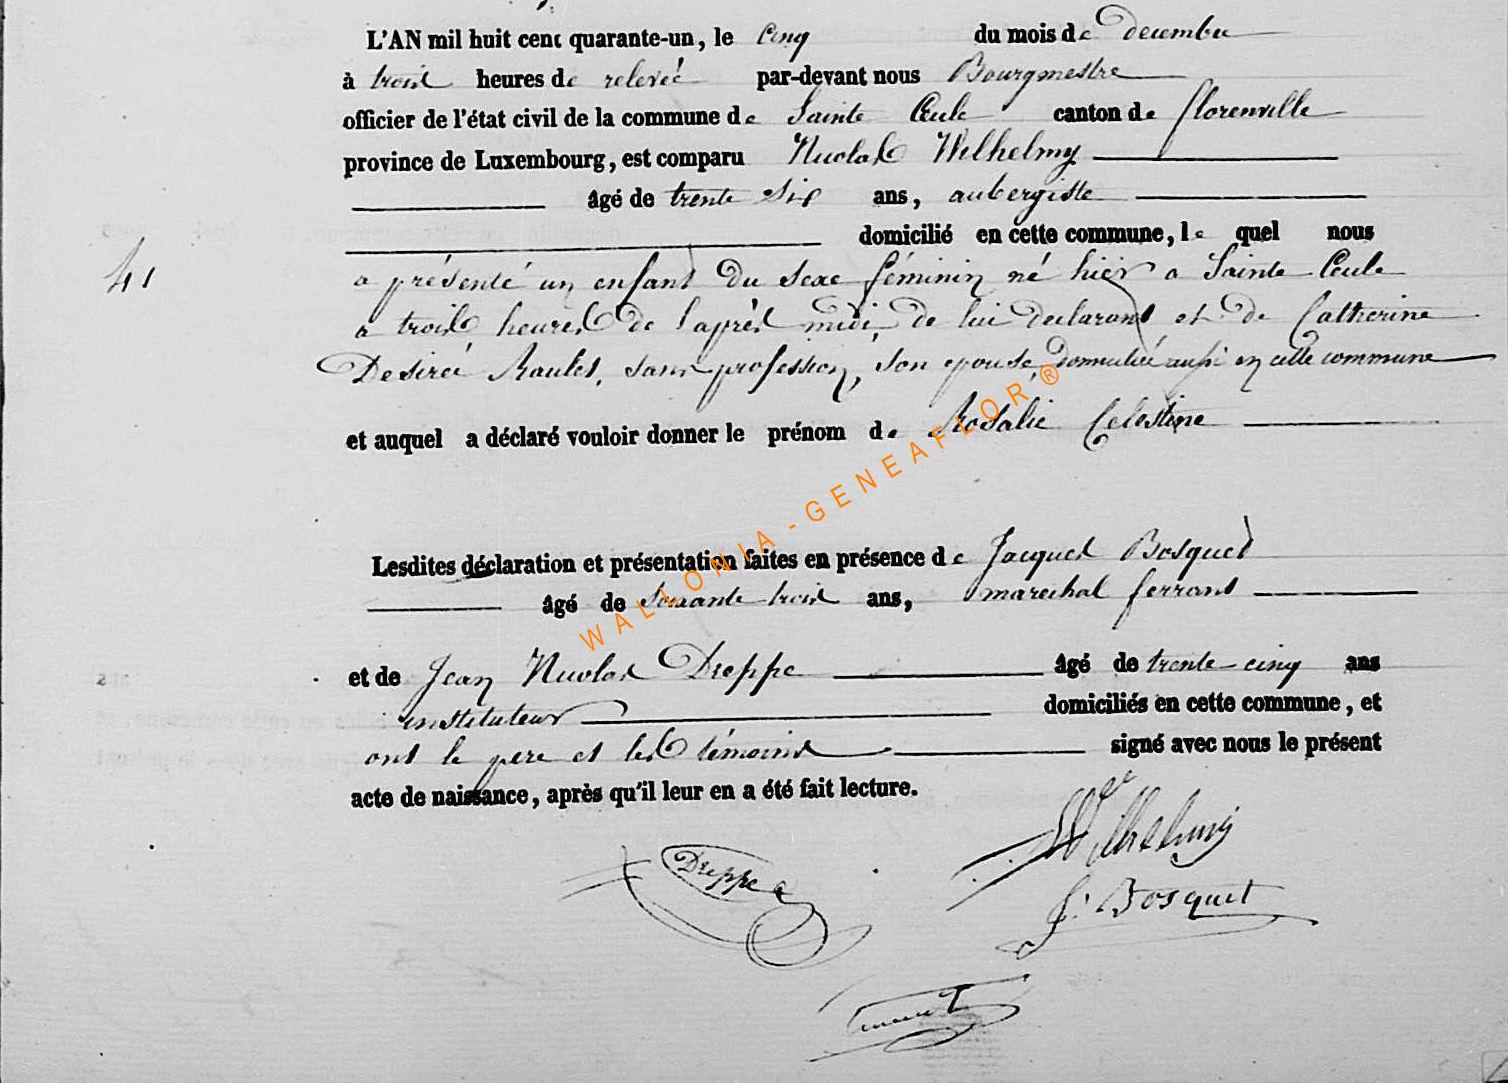 L'AN mil huit cent quarante-un, le cinq du mois de decembre
à trois heures de relevée par-devant nous Bourgmestre
officier de l'état civil de la commune de Sainte Cecile canton de florenville
province de Luxembourg, est comparu Nicolas Wilhelmy
âgé de trente six ans, aubergiste
domicilié en cette commune, le quel nous
41
a présenté un enfant du sexe féminin né hier a Sainte Cecile
a trois heures de l'après midi, de lui declarant et de Catherine
Desireé Raulet, sans profession, son epouse, domiciliée aussi en cette commune
et auquel a déclaré vouloir donner le prénom de Rosalie Celestine
WALLONIA-GENEAFLOR®
Lesdites déclaration et présentation faites en présence de Jacques Bosquet
âgé de soixante trois ans, marechal ferrant
et de Jean Nicolas Dreppe âgé de trente cinq ans
instituteur domiciliés en cette commune, et
ont le pere et les témoins signé avec nous le présent
acte de naissance, après qu'il leur en a été fait lecture.
Wilhelmy
Dreppe
J. Bosquet